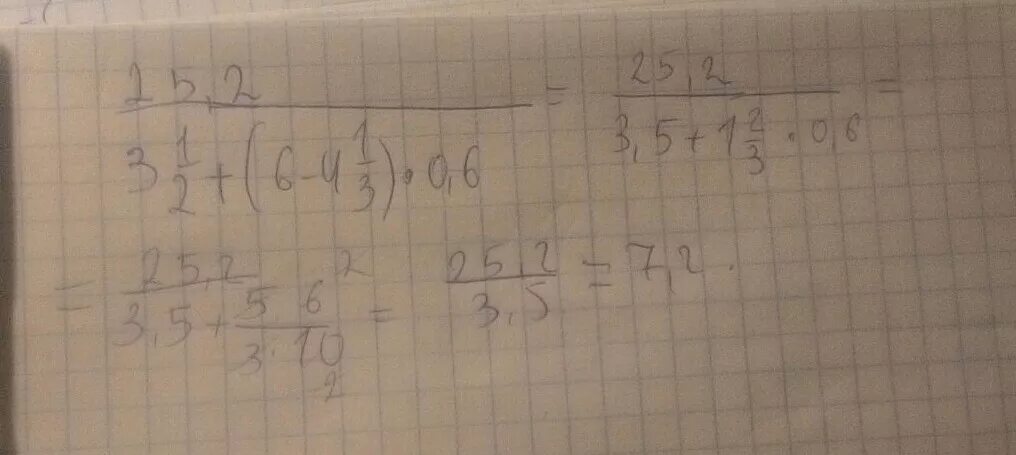 25,2 / (3 1/2 + (6 - 4 1/3) · 0,6) = 25,2 / (3,5 + 1 2/3 · 0,6) =
= 25,2 / (3,5 + 5 · 6 2 / 3 · 10 2) = 25,2 / 3,5 = 7,2.